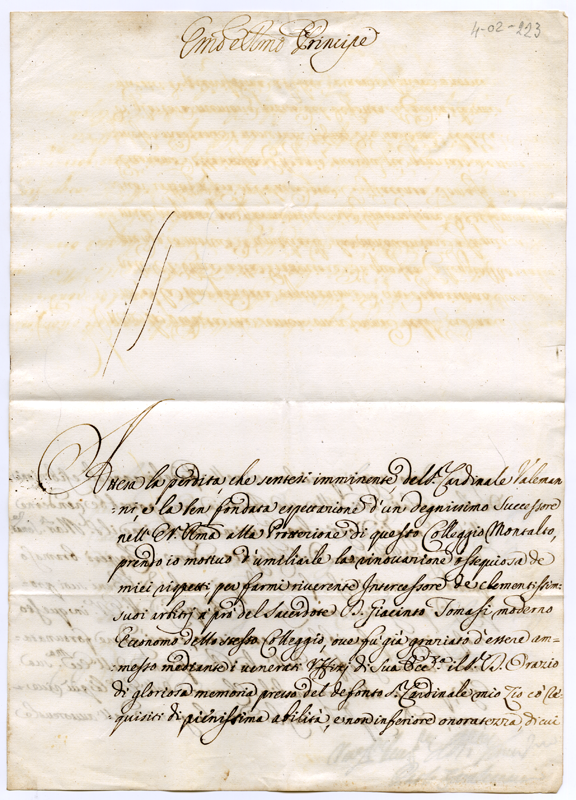 4-02-223
Em̃o e Rm̃o Principe
Attesa la perdita, che sentesi imminente dell' Sr. Cardinale Aleman=
=ni, e la ben fondata espettazione d'un degnissimo Successore
nell' Em̃a Vr̃a alla Protezione di questo Colleggio Montalto,
prendo io motivo d'umiliarle la rinovazione ossequiosa de
miei rispetti per farmi riverente Intercessore de' clementissimi
suoi arbitrj a prò del Sacerdote D. Giacinto Tomasi moderno
Economo dello stesso Colleggio, ove fu già graziato d'essere am=
=messo mediante i venerati Uffizj di Sua Ecc.za il Sr. D. Orazio
di gloriosa memoria presso del defonto Sr. Cardinale mio Zio co' re
quisiti di pienissima abilità, e non inferiore onoratezza, di cui